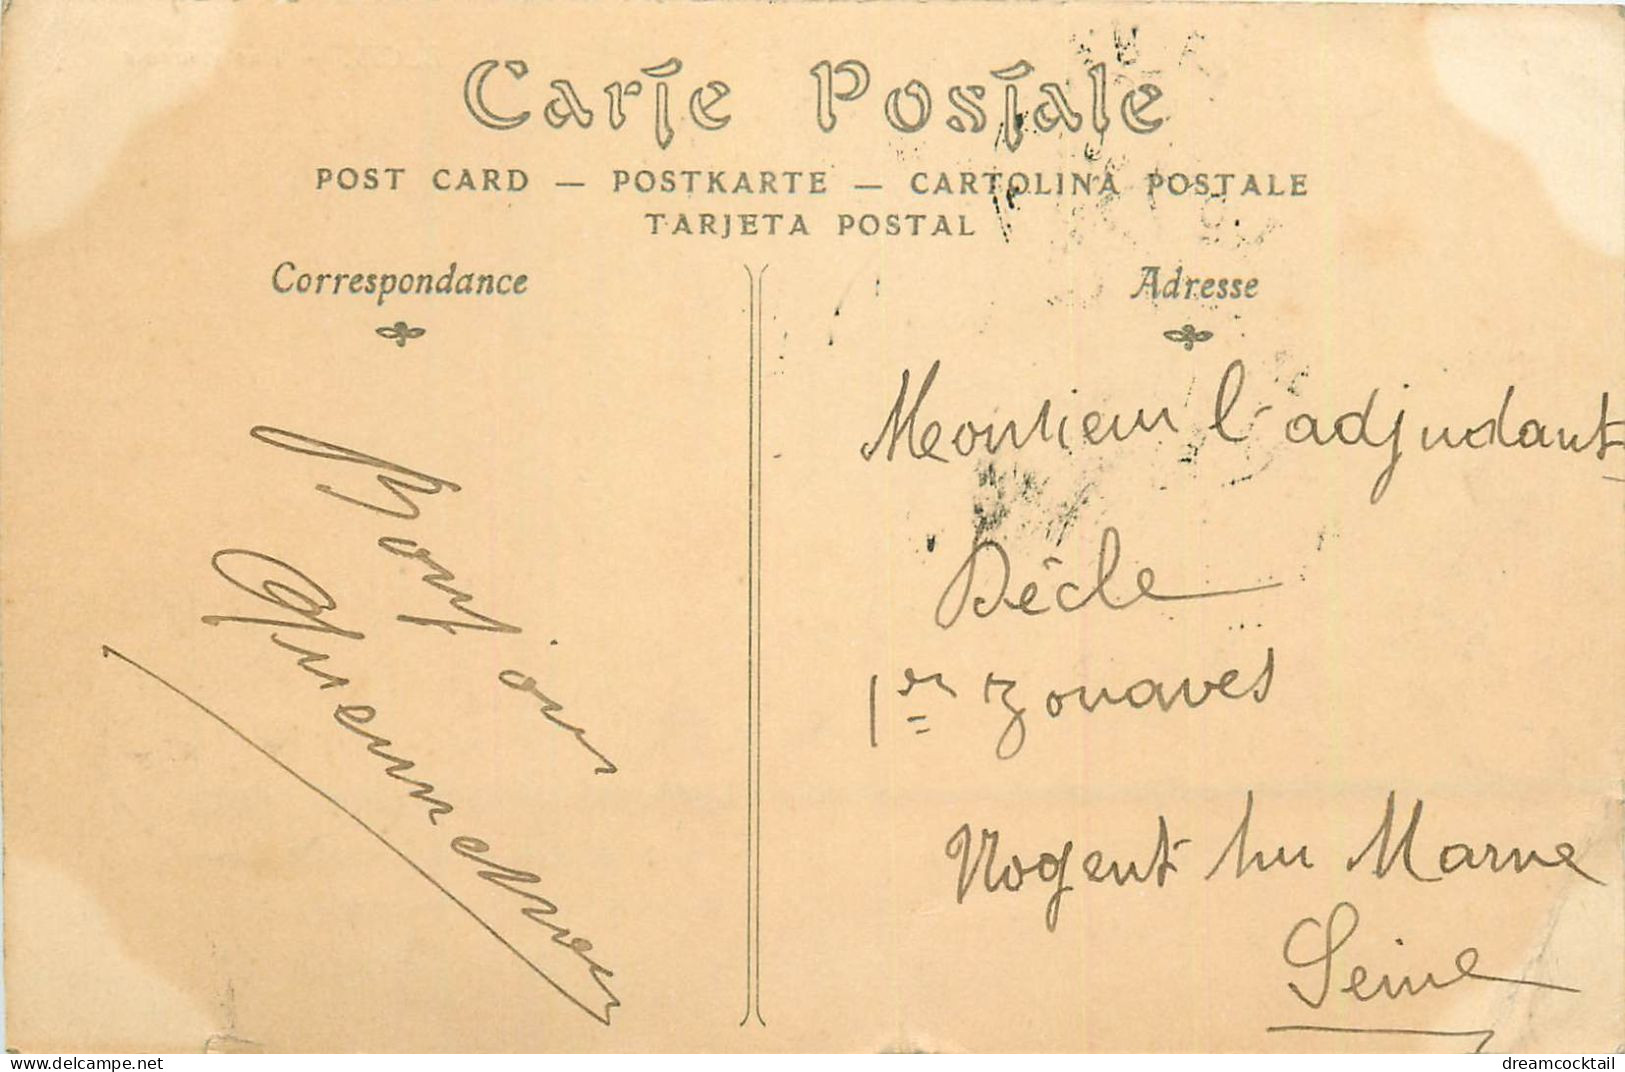 Carte Postale
POST CARD — POSTKARTE — CARTOLINA POSTALE
TARJETA POSTAL
Correspondance
Adresse
Bonjour
Monsieur l'adjudant
Décle
1er zouaves
Nogent sur Marne
Seine
dreamcocktail